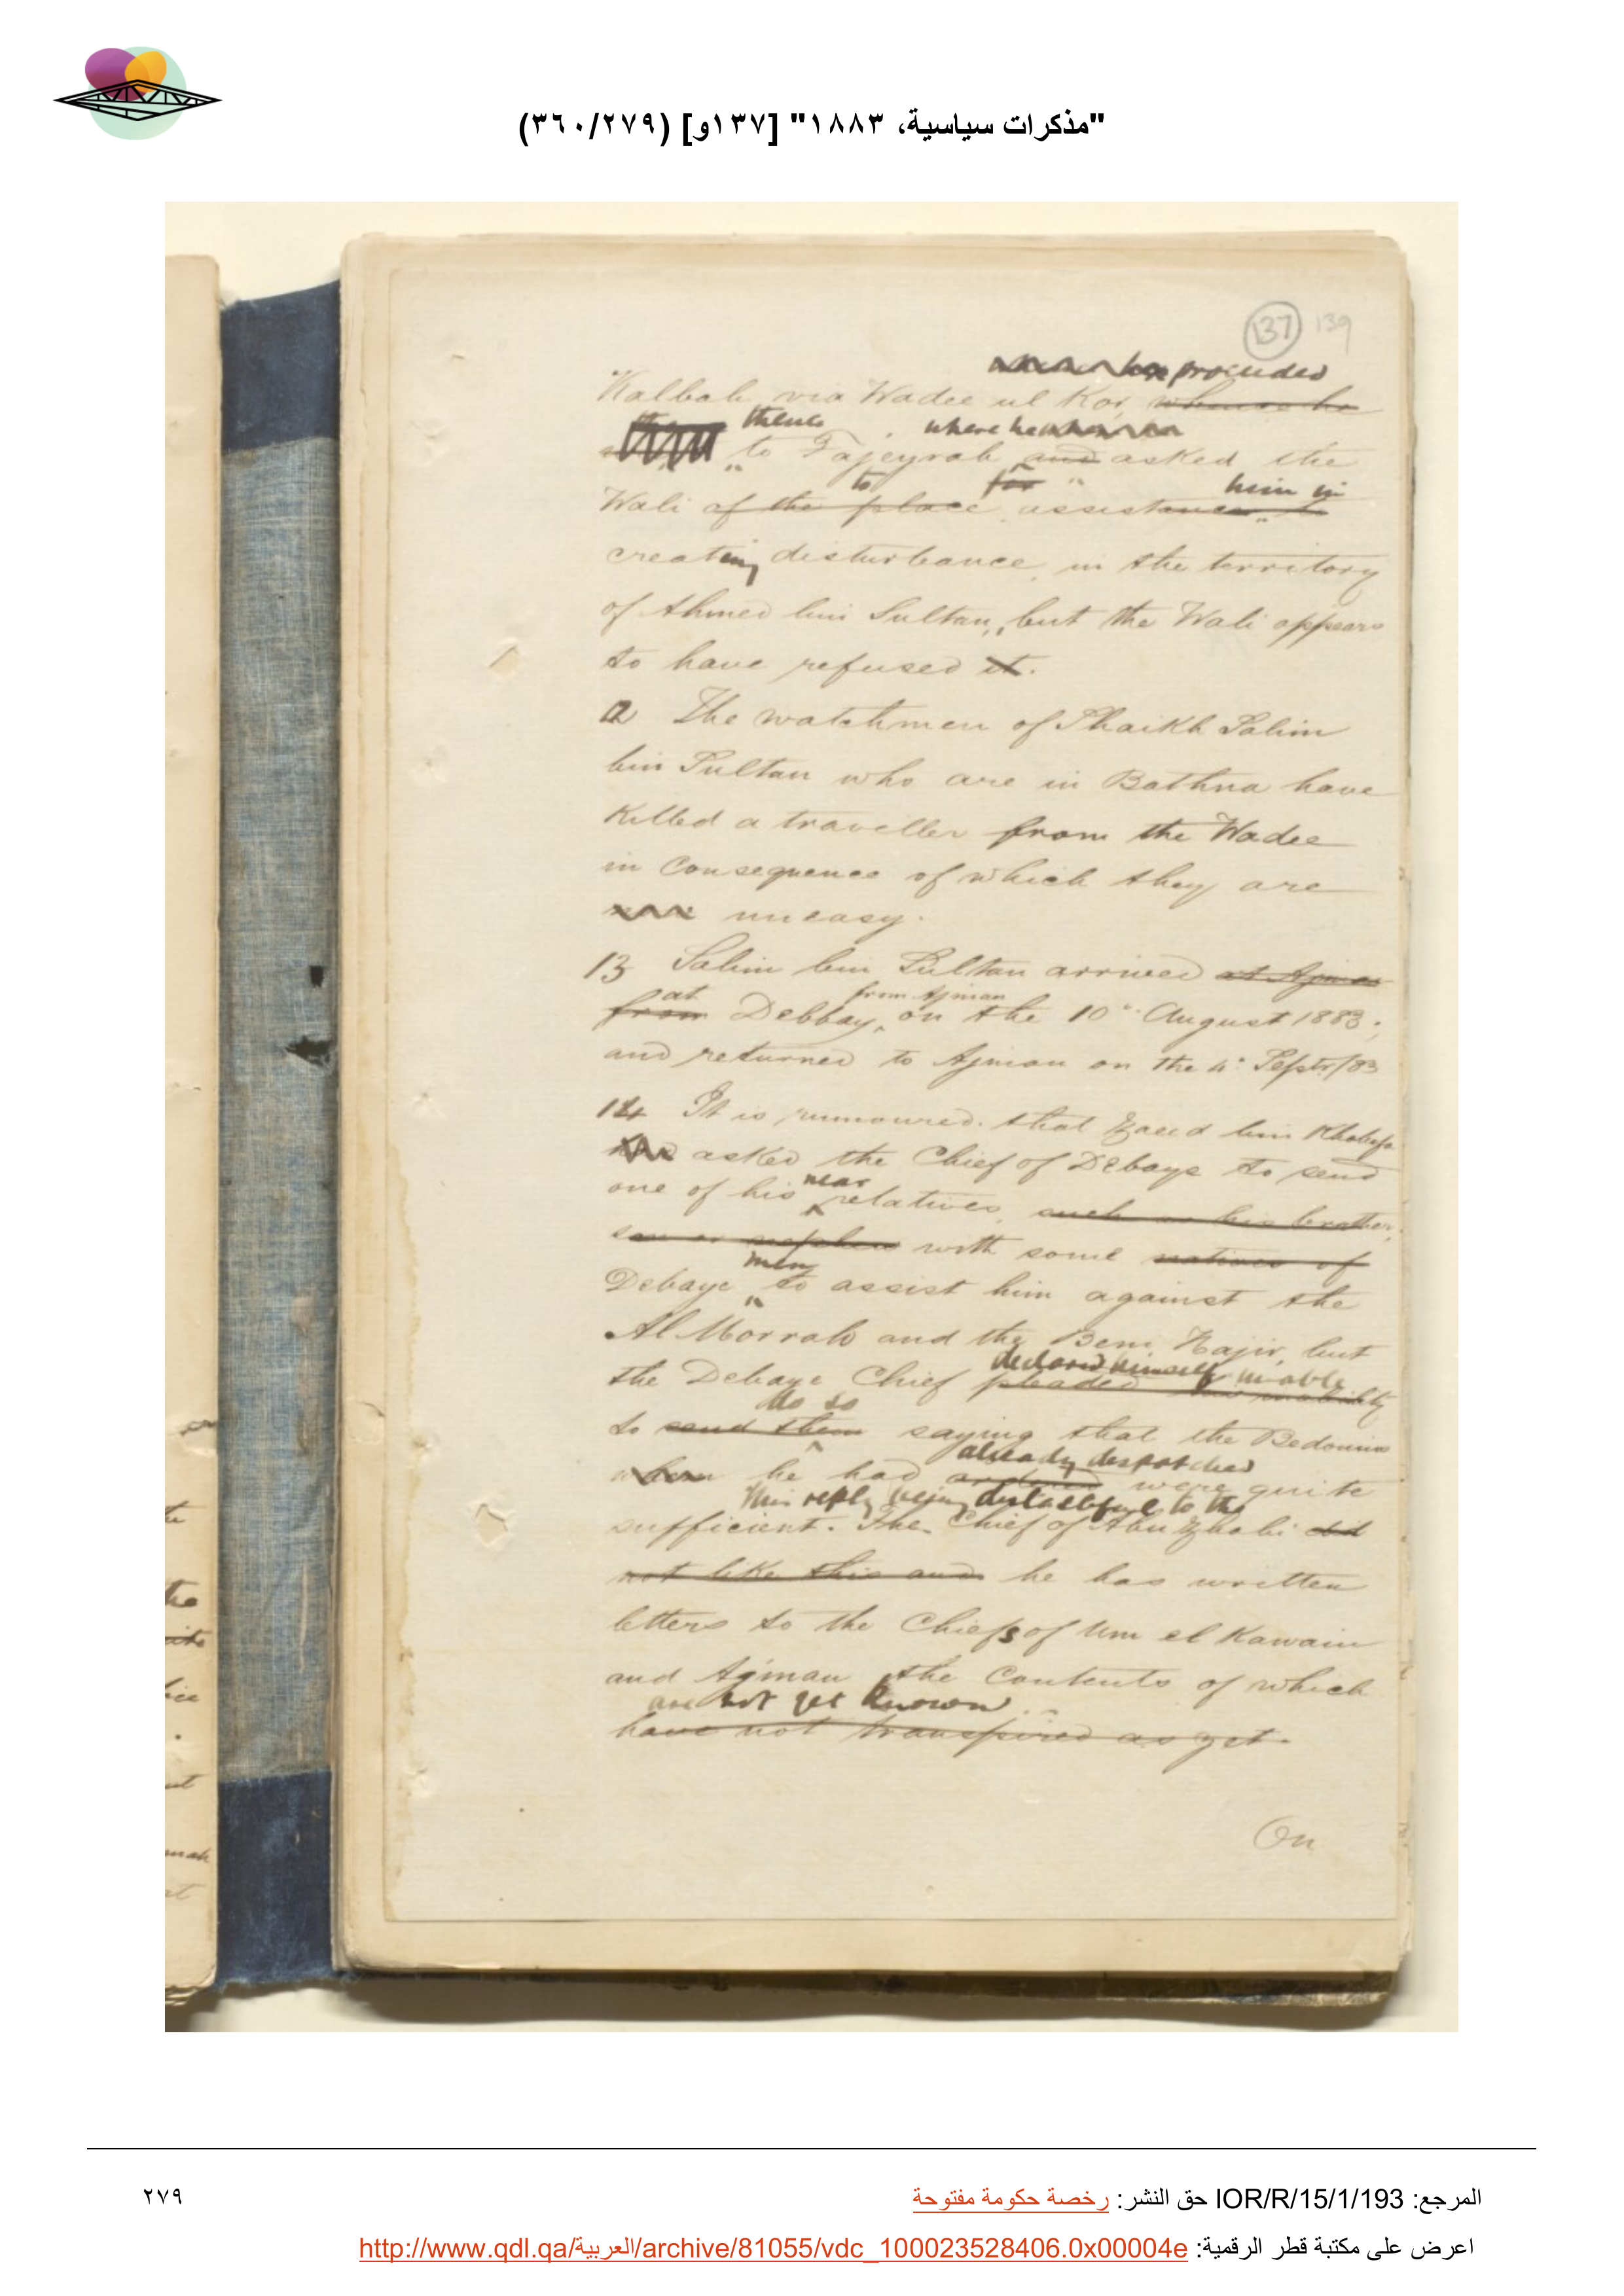 "مذكرات سياسية، ١٨٨٣" [١٣٧و] (٣٦٠/٢٧٩)
137 139
he proceeded
Kalbah via Wadee ul Kor whence he
thence where he
to Fajeyrah and asked the
to for him in
Wali of the place assistance to
creating disturbance in the territory
of Ahmed bin Sultan, but the Wali appears
to have refused it.
12 The watchmen of Shaikh Salim
bin Sultan who are in Bathna have
killed a traveller from the Wadee
in consequence of which they are
uneasy.
13 Salim bin Sultan arrived at Ajman
at from Ajman
from Debbay, on the 10th August 1883;
and returned to Ajman on the 4th Septr/83
14 It is rumoured that Zaeed bin Khalifa
has asked the Chief of Debaye to send
near
one of his relatives, such as his brother,
son or nephew with some natives of
men
Debaye to assist him against the
Al Morrah and the Beni Hajir, but
declared himself unable
the Debaye Chief pleaded his inability
do so
to send them saying that the Bedouins
already despatched
whom he had ordered were quite
This reply being distasteful to the
sufficient. The Chief of Abu Zhabi did
not like this and he has written
letters to the Chiefs of Um el Kawain
and Ajman the contents of which
are not yet known
have not transpired as yet.
On
المرجع: IOR/R/15/1/193 حق النشر: رخصة حكومة مفتوحة
٢٧٩
اعرض على مكتبة قطر الرقمية: http://www.qdl.qa/العربية/archive/81055/vdc_100023528406.0x00004e